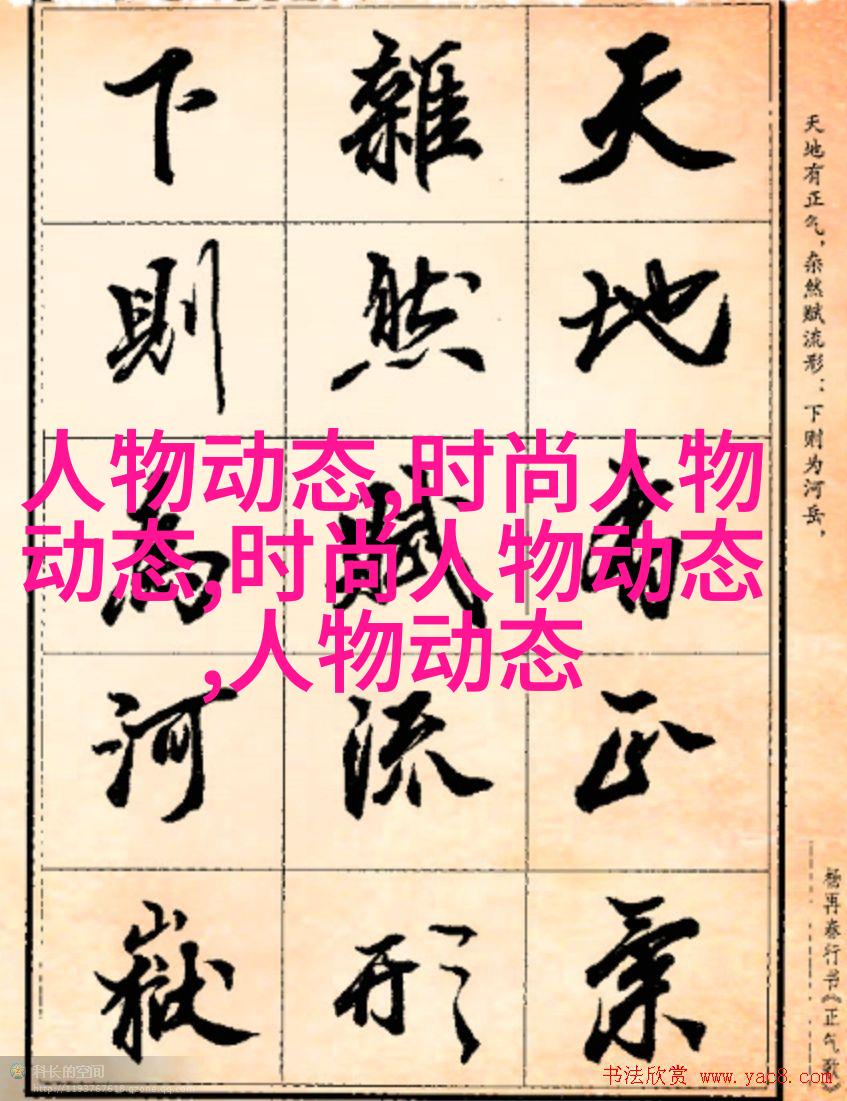 天地有正氣
雜然賦流形
下則為河嶽
天地有正气，杂然赋流形：下则为河岳，
杨再春行书《正气歌》
人物动态,时尚人物
动态,时尚人物动态
,人物动态
科长的空间
http://1193767618.qzone.qq.com
书法欣赏 www.yac8.com